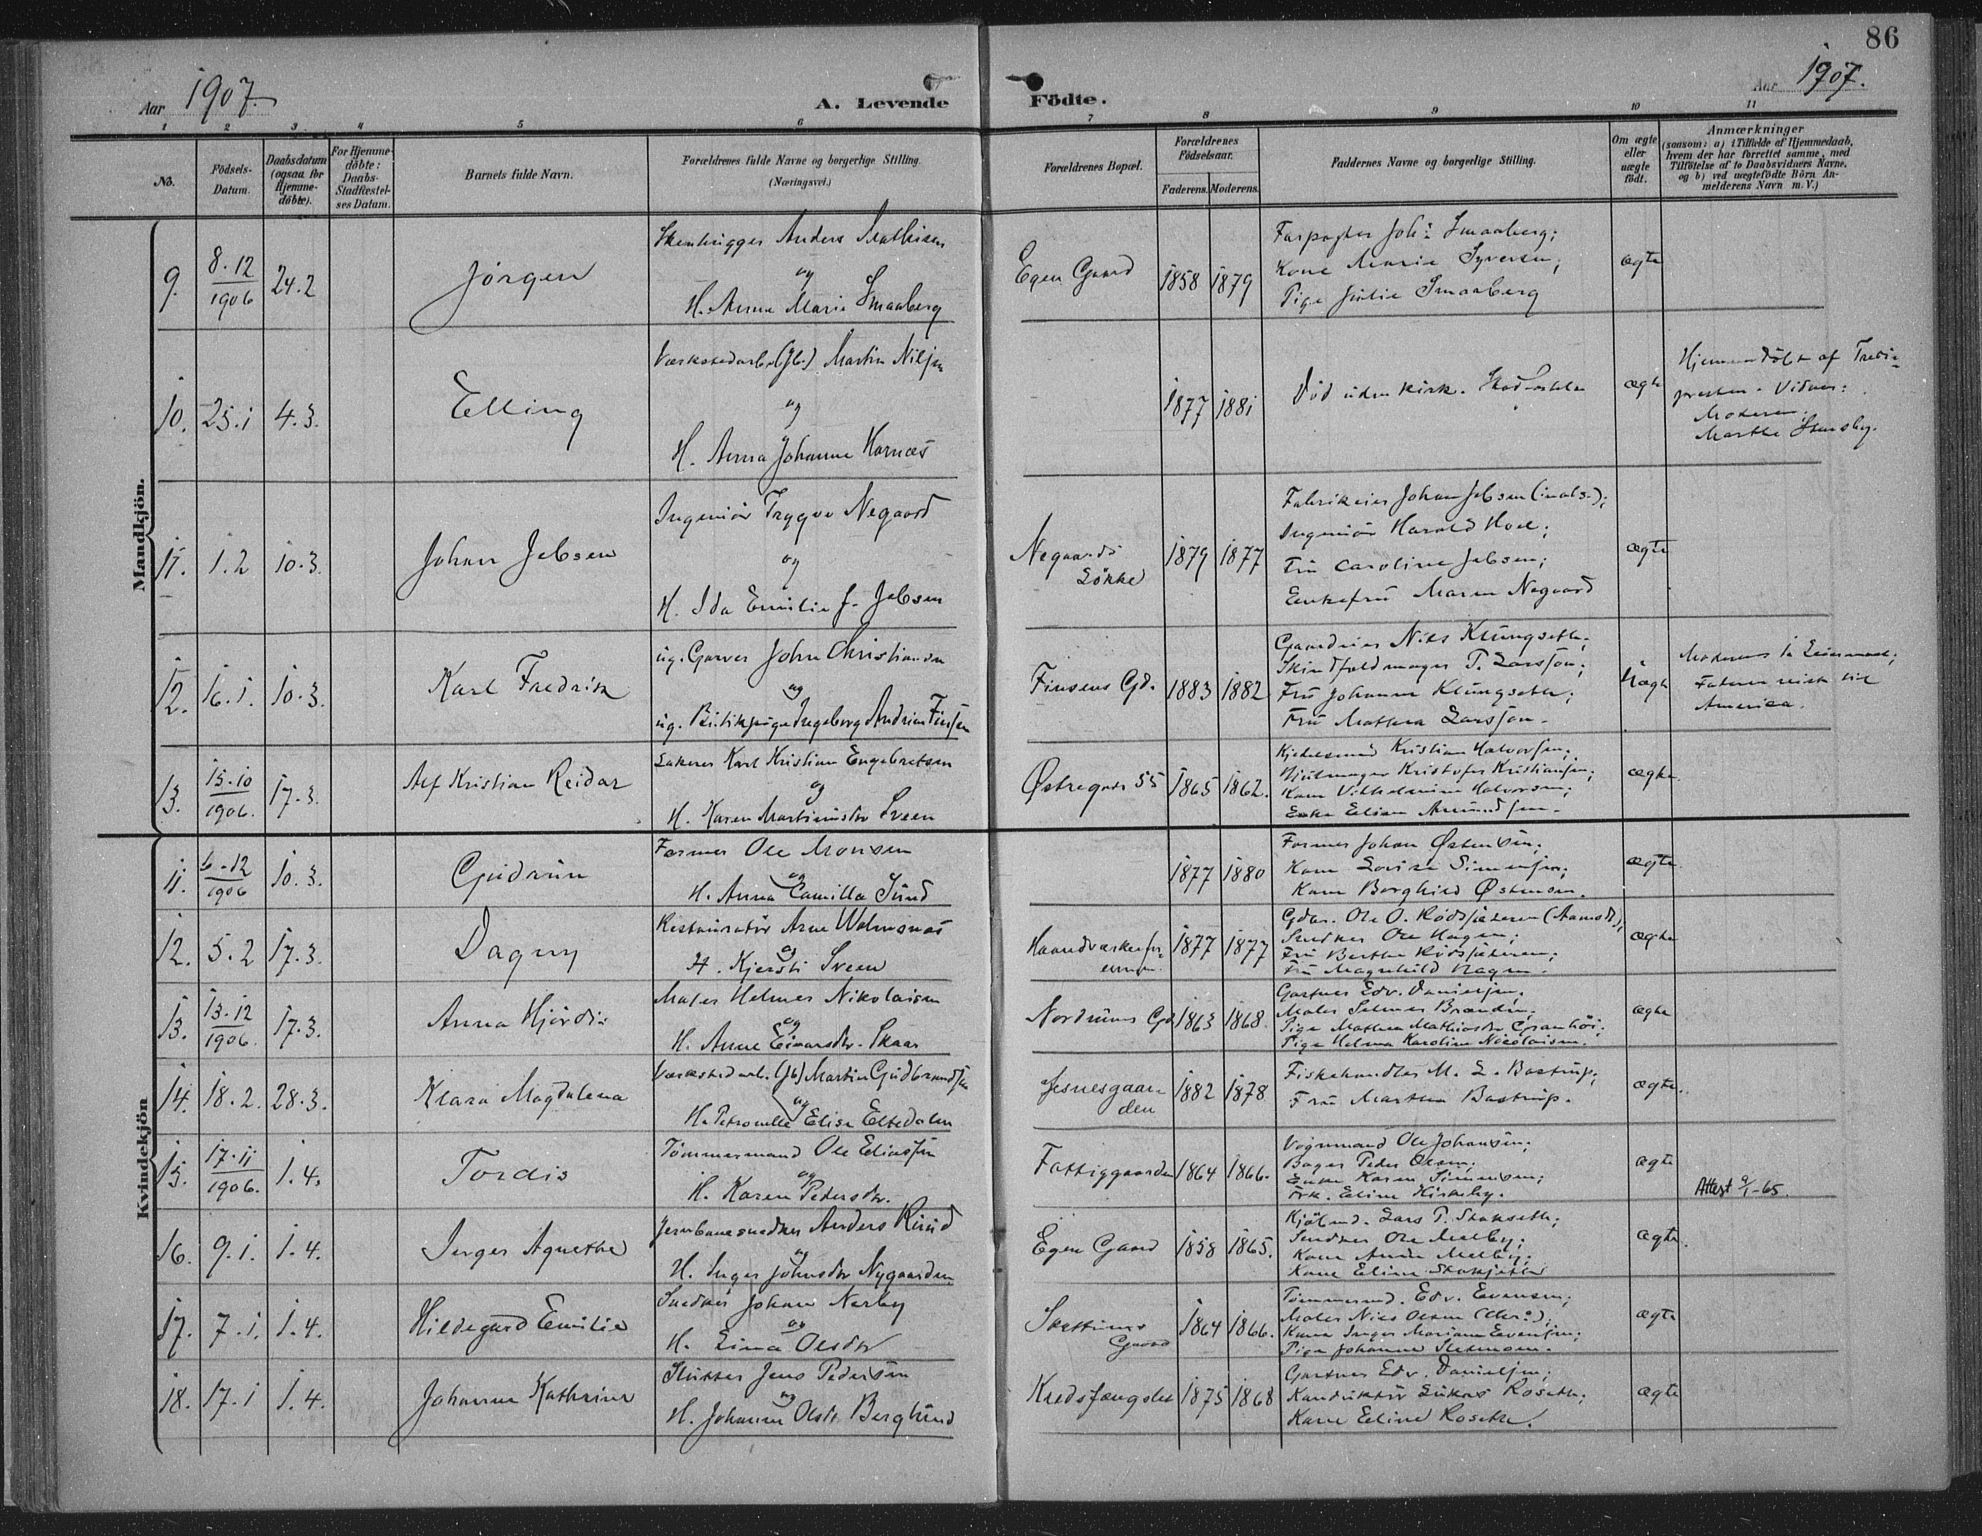 86
Aar 1907.
A. Levende Födte.
Aar 1907.
1 2 3 4 5 6 7 8 9 10 11
No.
Födsels-Datum.
Daabsdatum (ogsaa for Hjemme-döbte).
For Hjemme-döbte: Daabs-Stadfæstel-ses Datum.
Barnets fulde Navn.
Forældrenes fulde Navne og borgerlige Stilling. (Næringsvei.)
Forældrenes Bopæl.
Forældrenes Födselsaar.
Faderens. Moderens.
Faddernes Navne og borgerlige Stilling.
Om ægte eller uægte födt.
Anmærkninger
(saasom: a) i Tilfælde af Hjemmedaab, hvem der har forrettet samme, med Tilföielse af to Daabsvidners Navne, og b) ved uægtefödte Börn Anmelderens Navn m. V.)
Mandkjön.
9. 8.12 1906 24.2 Jörgen
Stenhugger Anders Mathisen
og
H. Anne Marie Smaaberg
Egen Gaard 1858 1879
Forpagter Joh: Smaaberg;
Kone Maria Syversen;
Pige Julie Smaaberg
ægte
10. 25.1 4.3. Elling
Værkstedarb. (Jb.) Martin Nilsen
og
H. Anna Johanne Hornæs
1877 1881
Död uden kirk. Stadfæstelse
ægte
Hjemmedöbt af
presten. Vidner:
Moderen;
Marthe Stensby.
11. 1.2 10.3. Johan Jebsen
Ingeniör Trygve Negaard
og
H. Ida Emilie f. Jebsen
Negaards Lökke 1879 1877
Fabrikeier Johan Jebsen
Ingeniör Harald Hoel;
Fru Caroline Jebsen;
Enkefru Maren Negaard
ægte
12. 16.1. 10.3. Karl Fredrik
ug. Garver John Christiansen
og
ug. Ingeborg Andrine Finsen
Finsens Gd. 1883 1882
Gaardeier Nils Klungseth;
Skindfeldmager P. Larsson;
Fru Johanne Klungseth;
Fru Mathea Larsson.
Uægte
Moderens
Faderen reist til
America.
13. 15.10 1906. 17.3. Alf Kristian Reidar
Karl Kristian Engebretsen
og
H. Karen Martinusdtr Sveen
Östregade 55 1865 1862.
Kristian Halvorsen;
Hjulmager Kristofer Kristiansen;
Kone Vilhelmine Halvorsen;
Enke Eline Amundsen.
ægte.
Kvindekjön
11. 6.12 1906 10.3. Gudrun
Former Ole Monsen
og
H. Anna Camilla Sund
1877 1880
Former Johan Östensen;
Kone Lovise Simensen;
Kone Borghild Östensen.
ægte.
12. 5.2 17.3. Dagny
Restauratör Arne Wolmsnæs
og
H. Kjersti Sveen
Haandværkerforeningen. 1877 1877
Gdbr. Ole O. Rödsjöteren (Aamodt);
Snedker Ole Hagen;
Fru Berthe Rödsjöteren;
Fru Magnhild Hagen.
ægte
13. 13.12 1906. 17.3. Anna Hjördis
Maler Helmer Nikolaisen
og
H. Anne Einarsdtr. Skaar
Nordrums Gd 1863 1868.
Gartner Edv. Danielsen;
Maler Selmer Brænden;
Pige Mathea Mathiasdtr Granhöi;
Pige Helma Karoline Nicolaisen.
ægte
14. 18.2. 28.3. Klara Magdalena
Værkstedarb. (Jb) Martin Gudbrandsen
og
H. Petronelle Elise Eltedalen
Jesnesgaarden 1882 1878
Fiskehandler M. L. Bastrup;
Fru Martha Bastrup.
ægte.
15. 17.11 1906. 1.4. Tordis
Tömmermand Ole Eliassen
og
H. Karen Pedersdtr.
Fattiggaarden 1864 1866.
Vognmand Ole Johansen;
Bager Peder Olsen;
Enke Karen Simensen;
Frk. Eline Kirkeby.
ægte
Attest 9/1-65.
16. 9.1. 1.4. Inger Agnethe
Jernbanesnedker Anders Ruud
og
H. Inger Johnsdtr Nygaarden
Egen Gaard 1858 1865.
Kjöbmd. Lars P. Stokseth;
Snedker Ole Melby;
Kone Anne Melby;
Kone Eline Stokseth
ægte.
17. 7.1. 1.4. Hildegard Emilie
Snedker Johan Nerby
og
H. Lina Olsdtr
Gaard 1864 1866.
Tömmermd. Edv. Evensen;
Maler Nils Olsen
Kone Inger Mariane Evensen;
Pige Johanne Stensmoen.
ægte
18. 17.1 1.4. Johanne Kathrine
Slutter Jens Pedersen
og
H. Johanne Olsdtr Berglund
Kredsfængslet 1875 1868
Gartner Edv. Danielsen;
Konduktör Lukas Roseth;
Kone Eline Roseth.
ægte